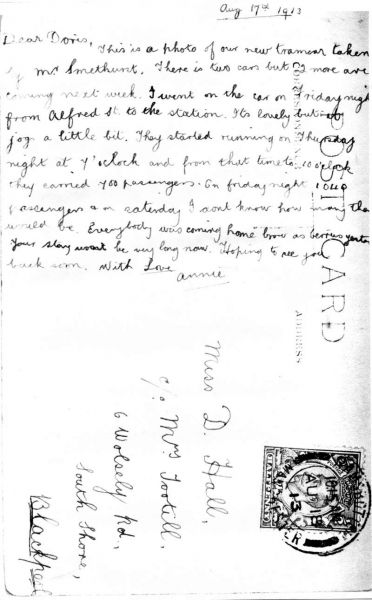 Aug 17th 1913
Dear Doris,
This is a photo of our new tramcar taken
by Mr Smethurst. There is two cars but 2 more are
coming next week. I went on the car on Friday night
from Alfred St. to the station. Its lovely but it
jog a little bit. They started running on Thursday
night at 7 o'clock and from that time to 10 o'clock
they carried 700 passengers. On friday night 1,040
passengers & on saterday I dont know how many there
would be. Everybody was coming home brow as berries yester
Your stay wont be very long now. Hoping to see you
back soon. With Love
Annie
POST CARD
ADDRESS
Miss D. Hall,
c/o Mrs Tootill,
6 Wolsely Rd,
South Shore,
Blackpool
HALFPENNY